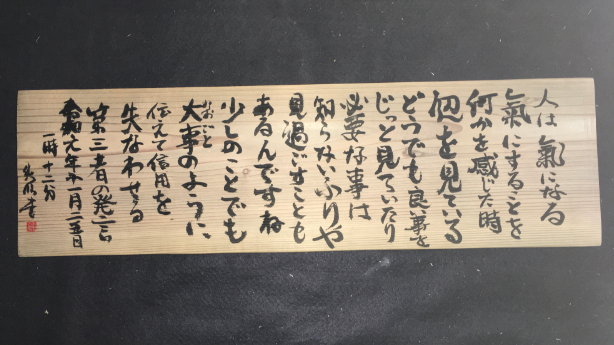 人は氣になる
氣にすることを
何かを感じた時
辺を見ている
どうでも良い事を
じっと見ていたり
必要な事は
知らないふりや
見過ごすことも
あるんですね
少しのことでも
おおごと
大事のように、
伝えて信用を
失なわせる
第三者の発言
令和元年十一月二五日
一時十二分